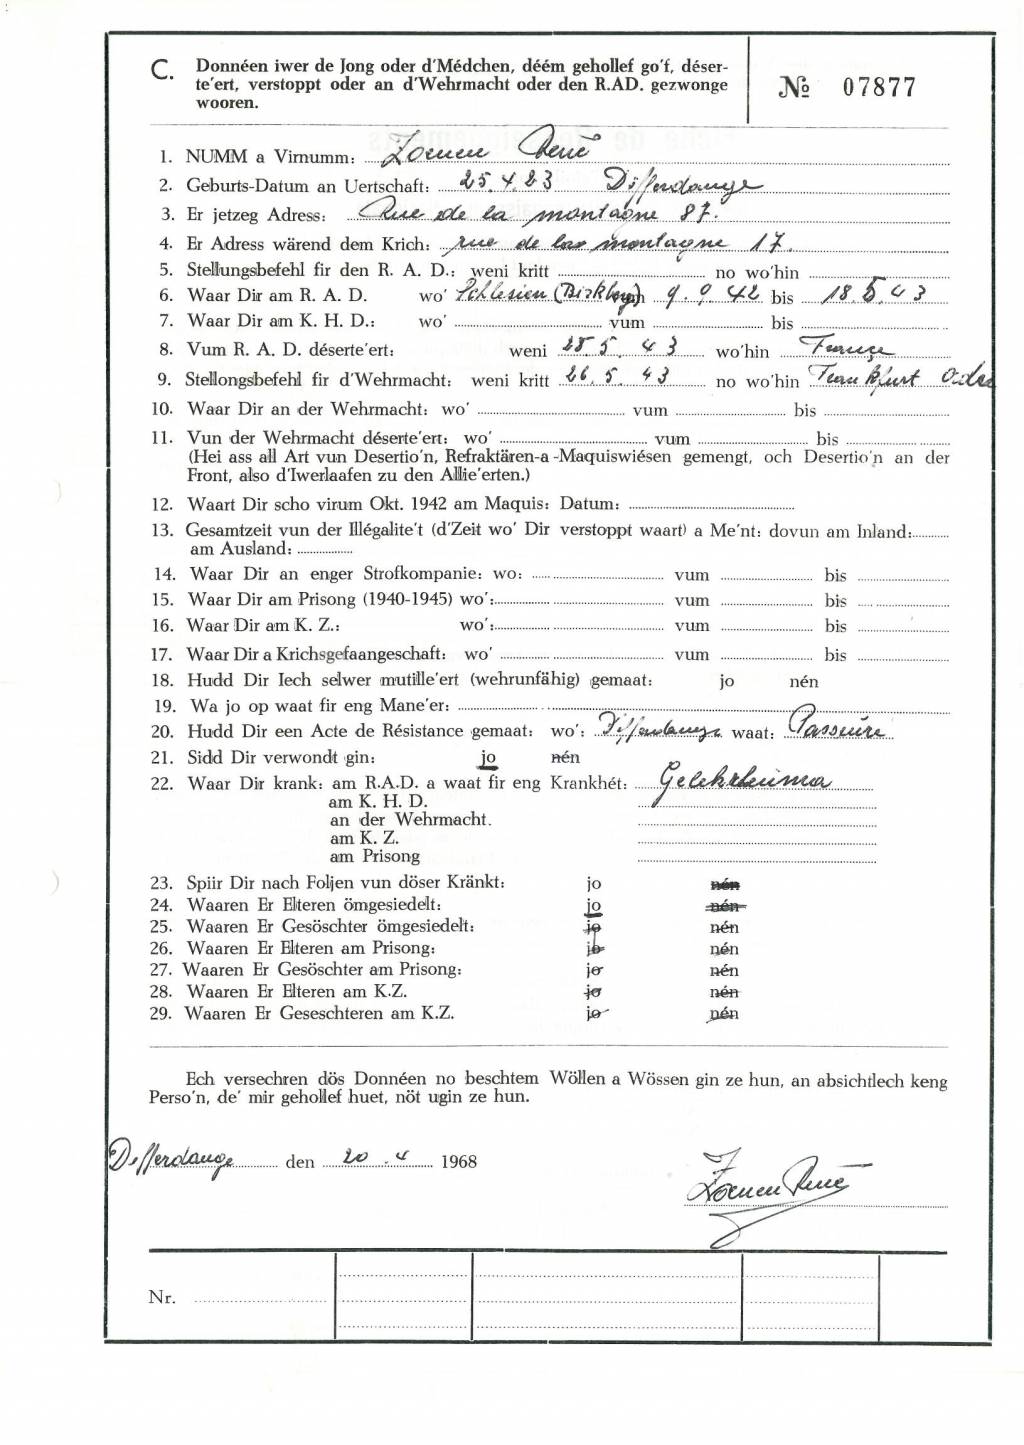 C. Donnéen iwer de Jong oder d'Médchen, déém gehollef go'f, déser-
te'ert, verstoppt oder an d'Wehrmacht oder den R.AD. gezwonge
wooren.
№ 07877
1. NUMM a Virnumm: Zoenen René
2. Geburts-Datum an Uertschaft: 25.4.23 Differdange
3. Er jetzeg Adress: Rue de la montagne 87.
4. Er Adress wärend dem Krich: rue de la montagne 17.
5. Stellungsbefehl fir den R. A. D.: weni kritt no wo'hin
6. Waar Dir am R. A. D. wo' Schlesien (Birkberg) 9.9.42 bis 18.5.43
7. Waar Dir am K. H. D.: wo' vum bis
8. Vum R. A. D. déserte'ert: weni 25.5.43 wo'hin France
9. Stellongsbefehl fir d'Wehrmacht: weni kritt 26.5.43 no wo'hin Frankfurt Oder
10. Waar Dir an der Wehrmacht: wo' vum bis
11. Vun der Wehrmacht déserte'ert: wo' vum bis
(Hei ass all Art vun Desertio'n, Refraktären-a-Maquiswiésen gemengt, och Desertio'n an der
Front, also d'Iwerlaafen zu den Allie'erten.)
12. Waart Dir scho virum Okt. 1942 am Maquis: Datum:
13. Gesamtzeit vun der Illégalite't (d'Zeit wo' Dir verstoppt waart) a Me'nt: dovun am Inland:
am Ausland:
14. Waar Dir an enger Strofkompanie: wo: vum bis
15. Waar Dir am Prisong (1940-1945) wo': vum bis
16. Waar Dir am K. Z.: wo': vum bis
17. Waar Dir a Krichsgefaangeschaft: wo' vum bis
18. Hudd Dir Iech selwer mutille'ert (wehrunfähig) gemaat: jo nén
19. Wa jo op waat fir eng Mane'er:
20. Hudd Dir een Acte de Résistance gemaat: wo': Differdange waat: Passeure
21. Sidd Dir verwondt gin: jo nén
22. Waar Dir krank: am R.A.D. a waat fir eng Krankhét: Gelekrheuma
am K. H. D.
an der Wehrmacht.
am K. Z.
am Prisong
23. Spiir Dir nach Foljen vun döser Kränkt: jo nén
24. Waaren Er Elteren ömgesiedelt: jo nén
25. Waaren Er Gesöschter ömgesiedelt: jo nén
26. Waaren Er Elteren am Prisong: jo nén
27. Waaren Er Gesöschter am Prisong: jo nén
28. Waaren Er Elteren am K.Z. jo nén
29. Waaren Er Geseschteren am K.Z. jo nén
Ech versechren dös Donnéen no beschtem Wöllen a Wössen gin ze hun, an absichtlech keng
Perso'n, de' mir gehollef huet, nöt ugin ze hun.
Differdange den 20.4 1968
Zoenen René
Nr.